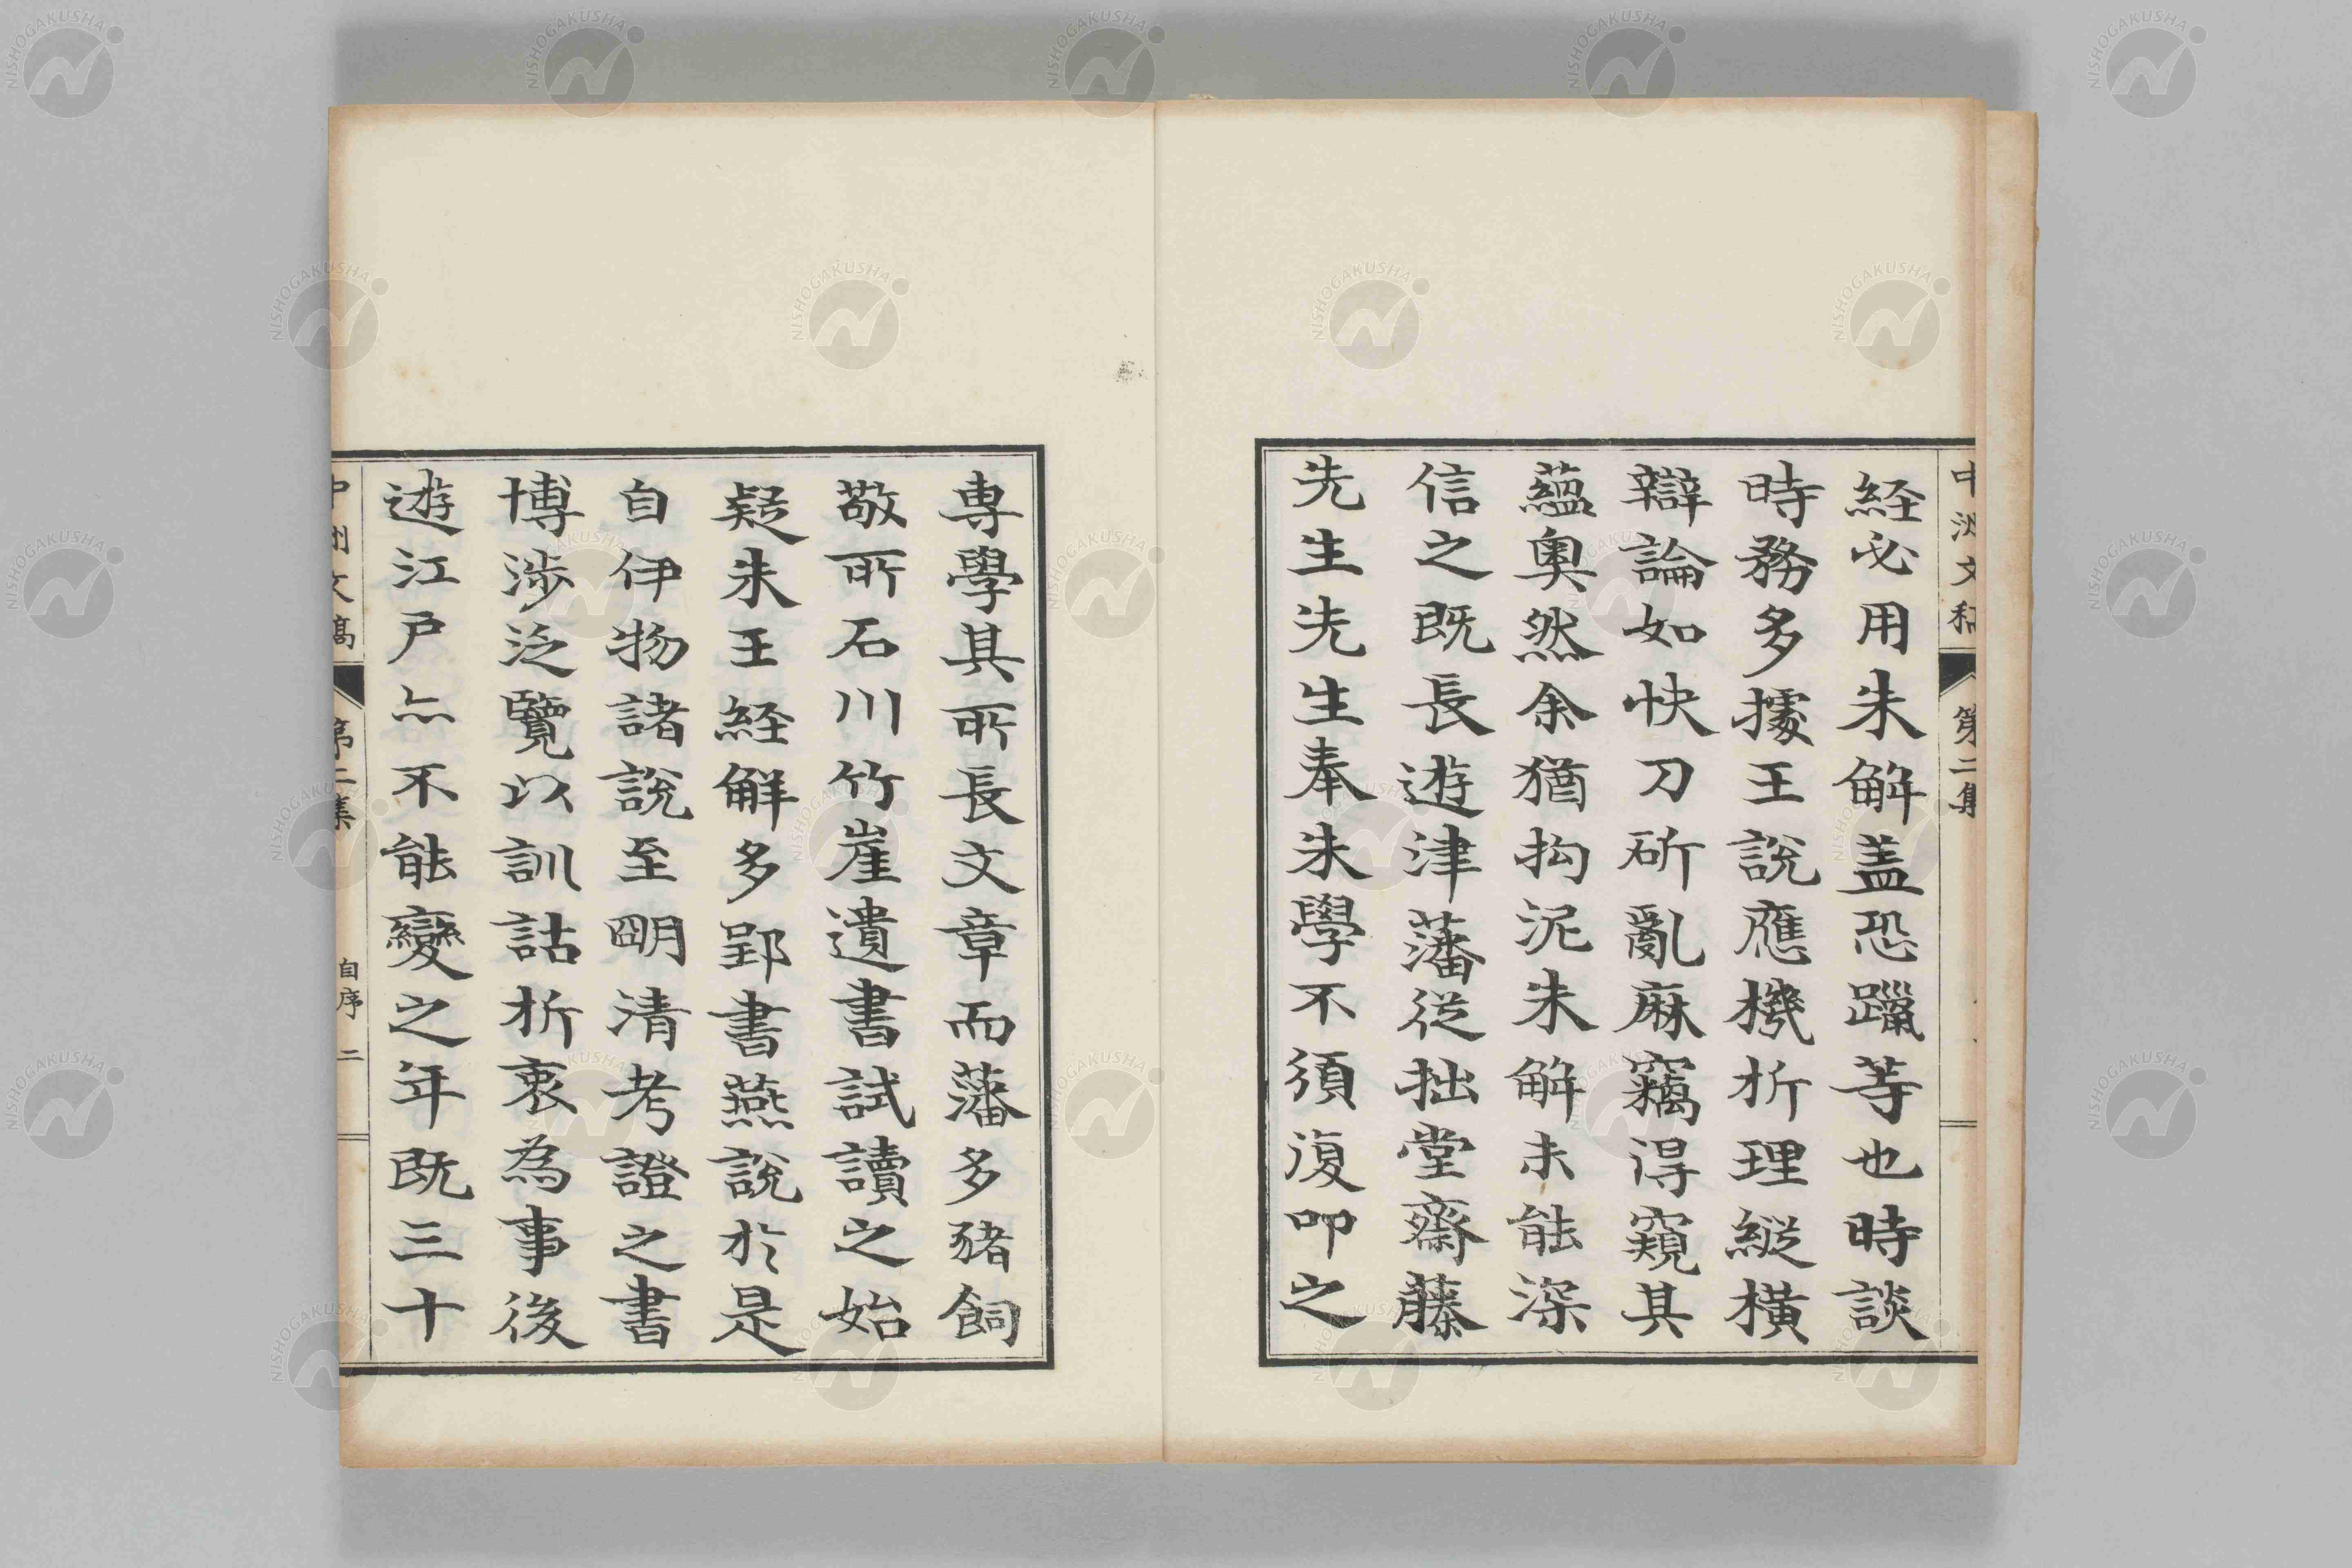 中洲文稿 第二集
経必用朱解盖恐躐等也時談
時務多據王說應機析理縱橫
辯論如快刀斫亂麻竊得窺其
蘊奧然余猶拘泥朱解未能深
信之既長遊津藩從拙堂齋藤
先生先生奉朱學不須復叩之
專學其所長文章而藩多豬飼
敬所石川竹崖遺書試讀之始
疑朱王経解多郢書燕說於是
自伊物諸說至明清考證之書
博涉泛覽以訓詁折衷為事後
遊江戶亦不能變之年既三十
中洲文稿 第二集 自序 二
NISHOGAKUSHA